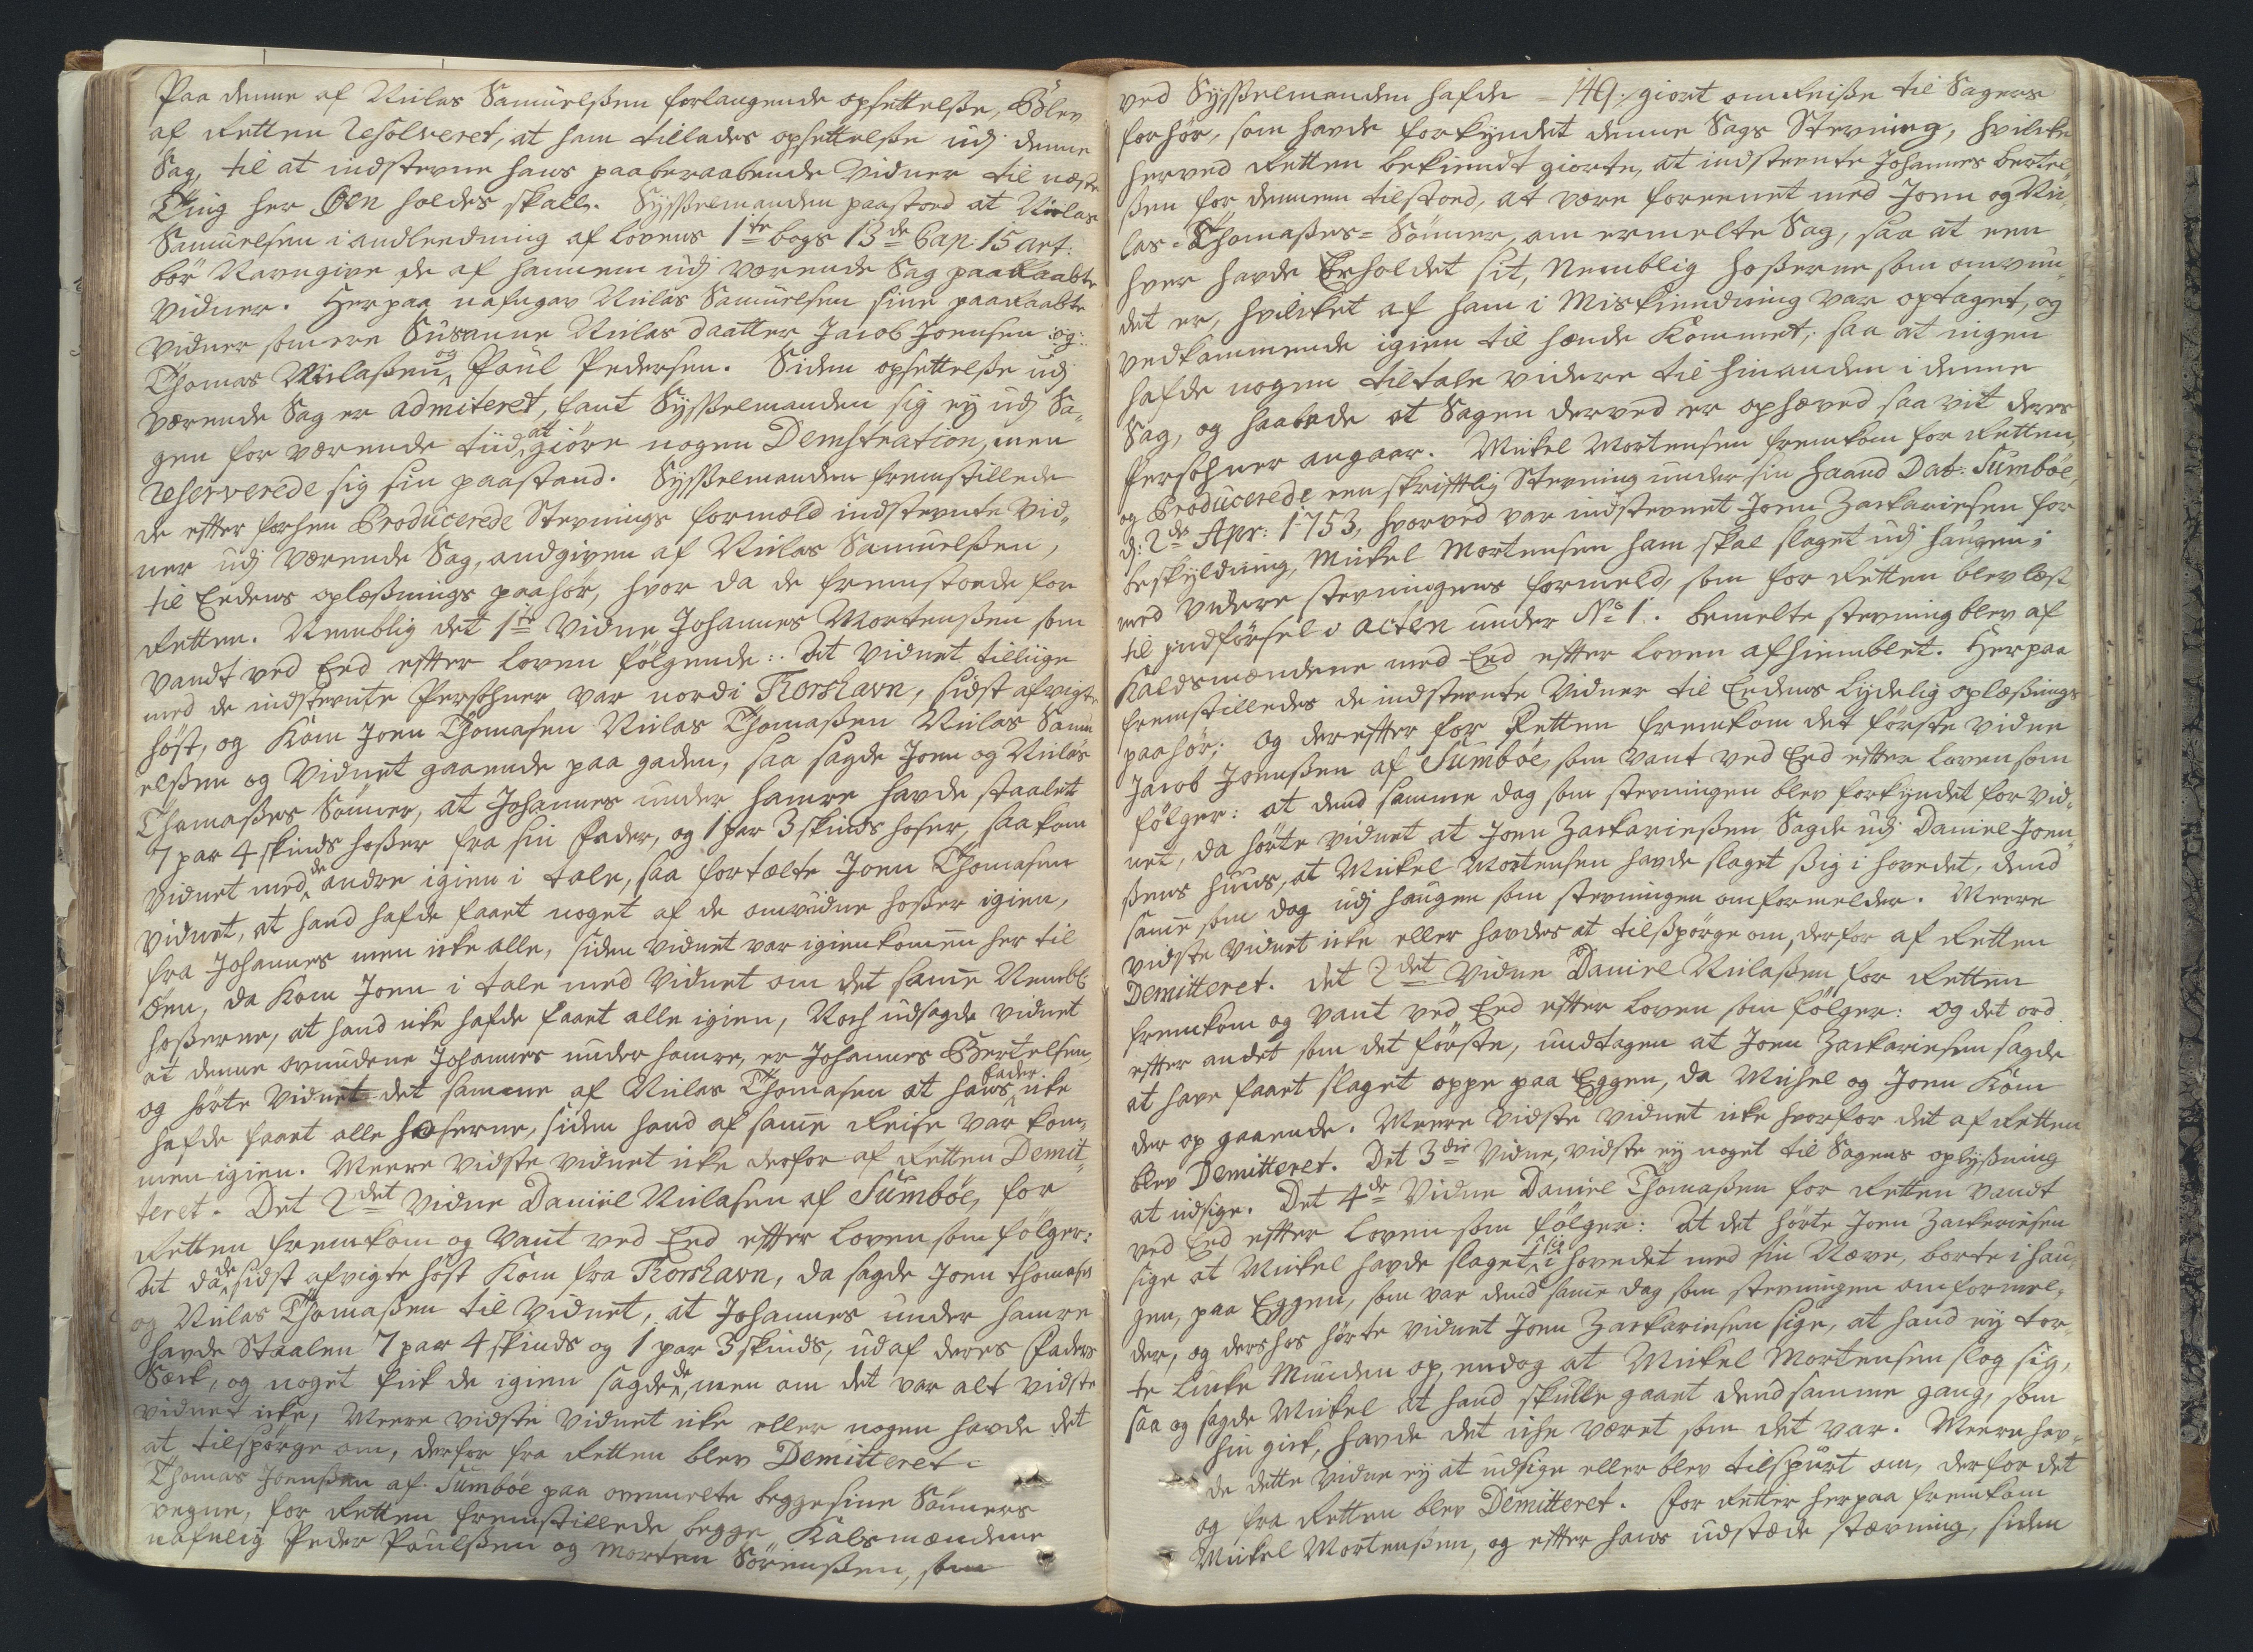 Paa denne af Niclas Samuelßen forlangende opsettelße, Blev
af Retten Resolveret, at ham tillades opsettelße udj denne
Sag, til at indstevne hans paaberaabende Vidner til næste
Ting her Øen holdes skall. Sysßelmanden paastoed at Niclas
Samuelsen i andleedning af lovens 1te bogs 13de Cap: 15 art:
bör Navngive de af hannem udj værende Sag paaRaabte
Vidner. Herpaa nafngav Niclas Samuelsen sine paaraabte
Vidner som ere Susanne Niclas daatter Jacob Joensen og:
Thomas Niclaßen og Poul Pedersen. Siden opsettelße udj
værende Sag er admiteret, fant Sysßelmanden sig ej udj Sa-
gen for værende tiid at giöre nogen Demstration, men
Reserverede sig sin paastand. Sysßelmanden fremstillede
de efter forhen Producerede Stevnings formæld indstevnte Vid-
ner udj værende Sag, andgiven af Niclas Samuelßen,
til Eedens oplæßnings paahör, hvor da de fremstoede for
Retten. Nemblig det 1te Vidne Johannes Mortenßen som
vandt ved Eed efter loven fölgende: At Vidnet tilliige
med de indstevnte Persohner var nord i Thorshavn, sidst afvigte
höst, og Kom Joen Thomasen Niclas Thomaßen Niclas Samu
elßen og Vidnet gaaende paa gaden, saa sagde Joen og Niclas
Thomaßens Sönner, at Johannes under hamre havde staalet
7 par 4 skinds hoßer fra sin Fader, og 1 par 3 skinds hoser, saa kom
Vidnet med de andre igien i tale, saa fortælte Joen Thomasen
vidnet, at hand hafde faaet noget af de omvidne hoßer igien,
fra Johannes men icke alle, siden vidnet var igienkomen her til
Øen, da Kom Joen i tale med Vidnet om det same Nembl
hoßerne, at hand icke hafde faaet alle igien, Noch udsagde vidnet
at denne omvidene Johannes under hamre, er Johannes Bertelsen,
og hörte Vidnet det samme af Niclas Thomasen at hans Fader icke
hafde faaet alle hoserne, siden hand af same Reise var kom-
men igien. Meere Vidste vidnet icke derfor af Retten Demit-
teret. Det 2det Vidne Daniel Niclasen af Sumböe, for
Retten fremkom og Vant ved Eed efter Loven som fölger:
At da de sidst afvigte höst Kom fra Thorshavn, da sagde Joen thomasen
og Niclas Thomaßen til Vidnet, at Johannes under hamre
havde Staalen 7 par 4 skinds og 1 par 3 skinds, ud af deres Faders
Sæck, og noget fick de igien sagde de, men om det var alt vidste
vidnet icke, Meere vidste Vidnet icke eller nogen havde det
at tilspörge om, derfor fra Retten blev Demitteret.
Thomas Joenßen af Sumböe paa ovenmelte begge sine Sönners
vegne, for Retten fremstillede begge Kalsmændene
nafnlig Peder Poulßen og Morten Sörenßen, som
ved Sysßelmanden hafde = 149: giort om Reiße til Sagens
forhör, som havde forkyndet denne Sags Stevning, hvilcke
herved Retten bekiendt giorte, at indstevnte Johannes bertel-
ßen for dennem tilstoed, at være foreenet med Joen og Nic-
las = Thomaßes = Sönner, om ermelte Sag, saa at een
hver havde Beholdet sit, Nemblig hoßerne som omvun-
det er, hvilcket af ham i Miskiendning var optaget, og
vedkommende igien til hænde Kommet; saa at ingen
hafde nogen tiltale videre til hinanden i denne
Sag, og haabede at Sagen derved er ophæved saa vit deres
Persohner angaar. Mickel Mortensen fremkom for Retten,
og Producerede een skrifftlig Stevning under sin Haand Dat: Sumböe,
d: 2de Apr: 1753, hvorved var indstevnet Joen Zackariesen for
beskyldning, Mickel Mortensen ham skal slaget udj haugen;
med Videre stevningens formeld, som for Retten blev læst
til jndförsel i acten under No 1. bemelte stevning blev af
Kaldsmændene med Eed efter loven afhiemblet. Herpaa
fremstilledes de indstevnte Vidner til Eedens lydelig oplæßnings
paahör; og derefter for Retten fremkom det förste vidne
Jacob Joenßen af Sumböe, som vant ved Eed efter Loven som
fölger: at dend samme dag som stevningen blev forkyndet for Vid-
net, da hörte vidnet at Joen Zackarießen Sagde udj Daniel Joen-
ßens huus, at Mickel Mortensen havde slaget ßig i hovedet, dend
same som dag udj haugen som stevningen omformelder. Meere
vidste Vidnet icke eller havdes at tilßpörge om, derfor af Retten
Demitteret. Det 2det Vidne Daniel Niclaßen for Retten
fremkom og vant ved Eed efter Loven som fölger: og det ord
efter andet som det förste, undtagen at Joen Zackariesen sagde
at have faaet slaget oppe paa Eggen, da Michel og Joen Kom
der op gaaende. Meere Vidste vidnet icke hvorfor det af Retten
blev Demitteret. Det 3die Vidne, vidste ej noget til Sagens oplyßning
at udsige. Det 4de Vidne Daniel Thomaßen for Retten vandt
ved Eed efter Loven som fölger: At det hörte Joen Zackariesen
sige at Mickel havde slaget sig i hovedet med sin Næve, borte i hau-
gen, paa Eggen, som var dend same dag som stevningen omformel-
der, og dershos hörte vidnet Joen Zackariesen sige, at hand ej tor-
te lucke Munden op, endog at Mickel Mortensen slog sig,
saa og sagde Mickel at hand skulle gaaet dend samme gang, som
hin gick, havde det iche været som det var. Meere hav-
de dette Vidne ej at udsige eller blev tilspurt om, derfor det
og fra Retten blev Demitteret. For Retten herpaa fremkom
Mickel Mortenßen, og efter hans udstæde stævning, siden